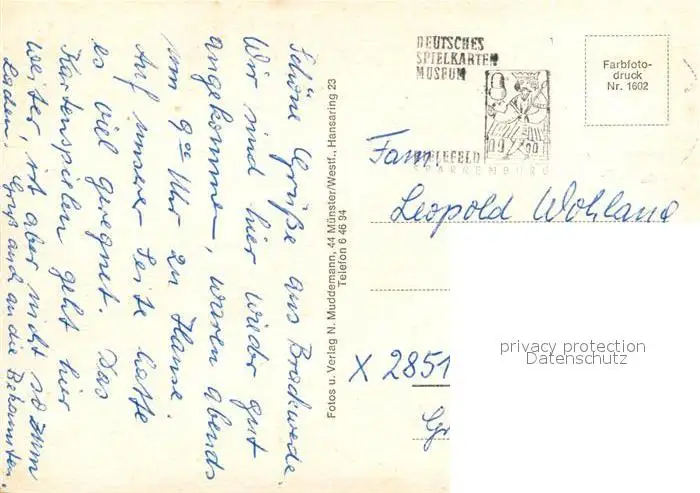 Schöne Grüße aus Brackwede.
Wir sind hier wieder gut
angekommen, waren abends
um 9.00 Uhr zu Hause.
Auf unserer Seite hatte
es viel geregnet. Das
Kartenspielen geht hier
weiter, ist aber nicht so zum
Laden. Gruß auch an die Bekannten.
Fotos u. Verlag N. Muddemann, 44 Münster/Westf., Hansaring 23
Telefon 6 46 94
DEUTSCHES
SPIELKARTEN
MUSEUM
BIELEFELD
SPARRENBURG
Farbfoto-
druck
Nr. 1602
Fam.
Leopold Wohland
X 2851
privacy protection
Datenschutz